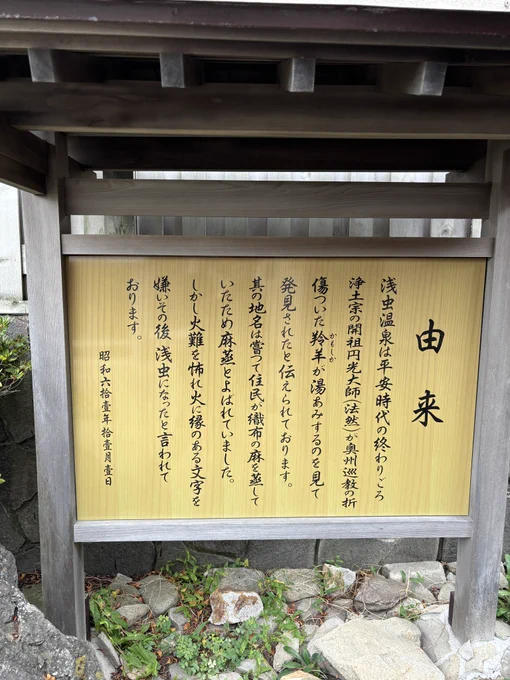 由来
浅虫温泉は平安時代の終わりごろ
浄土宗の開祖円光大師(法然)が奥州巡教の折
傷ついた羚羊が湯あみするのを見て
かもしか
発見されたと伝えられております。
其の地名は嘗つて住民が織布の麻を蒸して
いたため麻蒸とよばれていました。
しかし火難を怖れ火に縁のある文字を
嫌いその後、浅虫になったと言われて
おります。
昭和六拾壹年拾壹月壹日